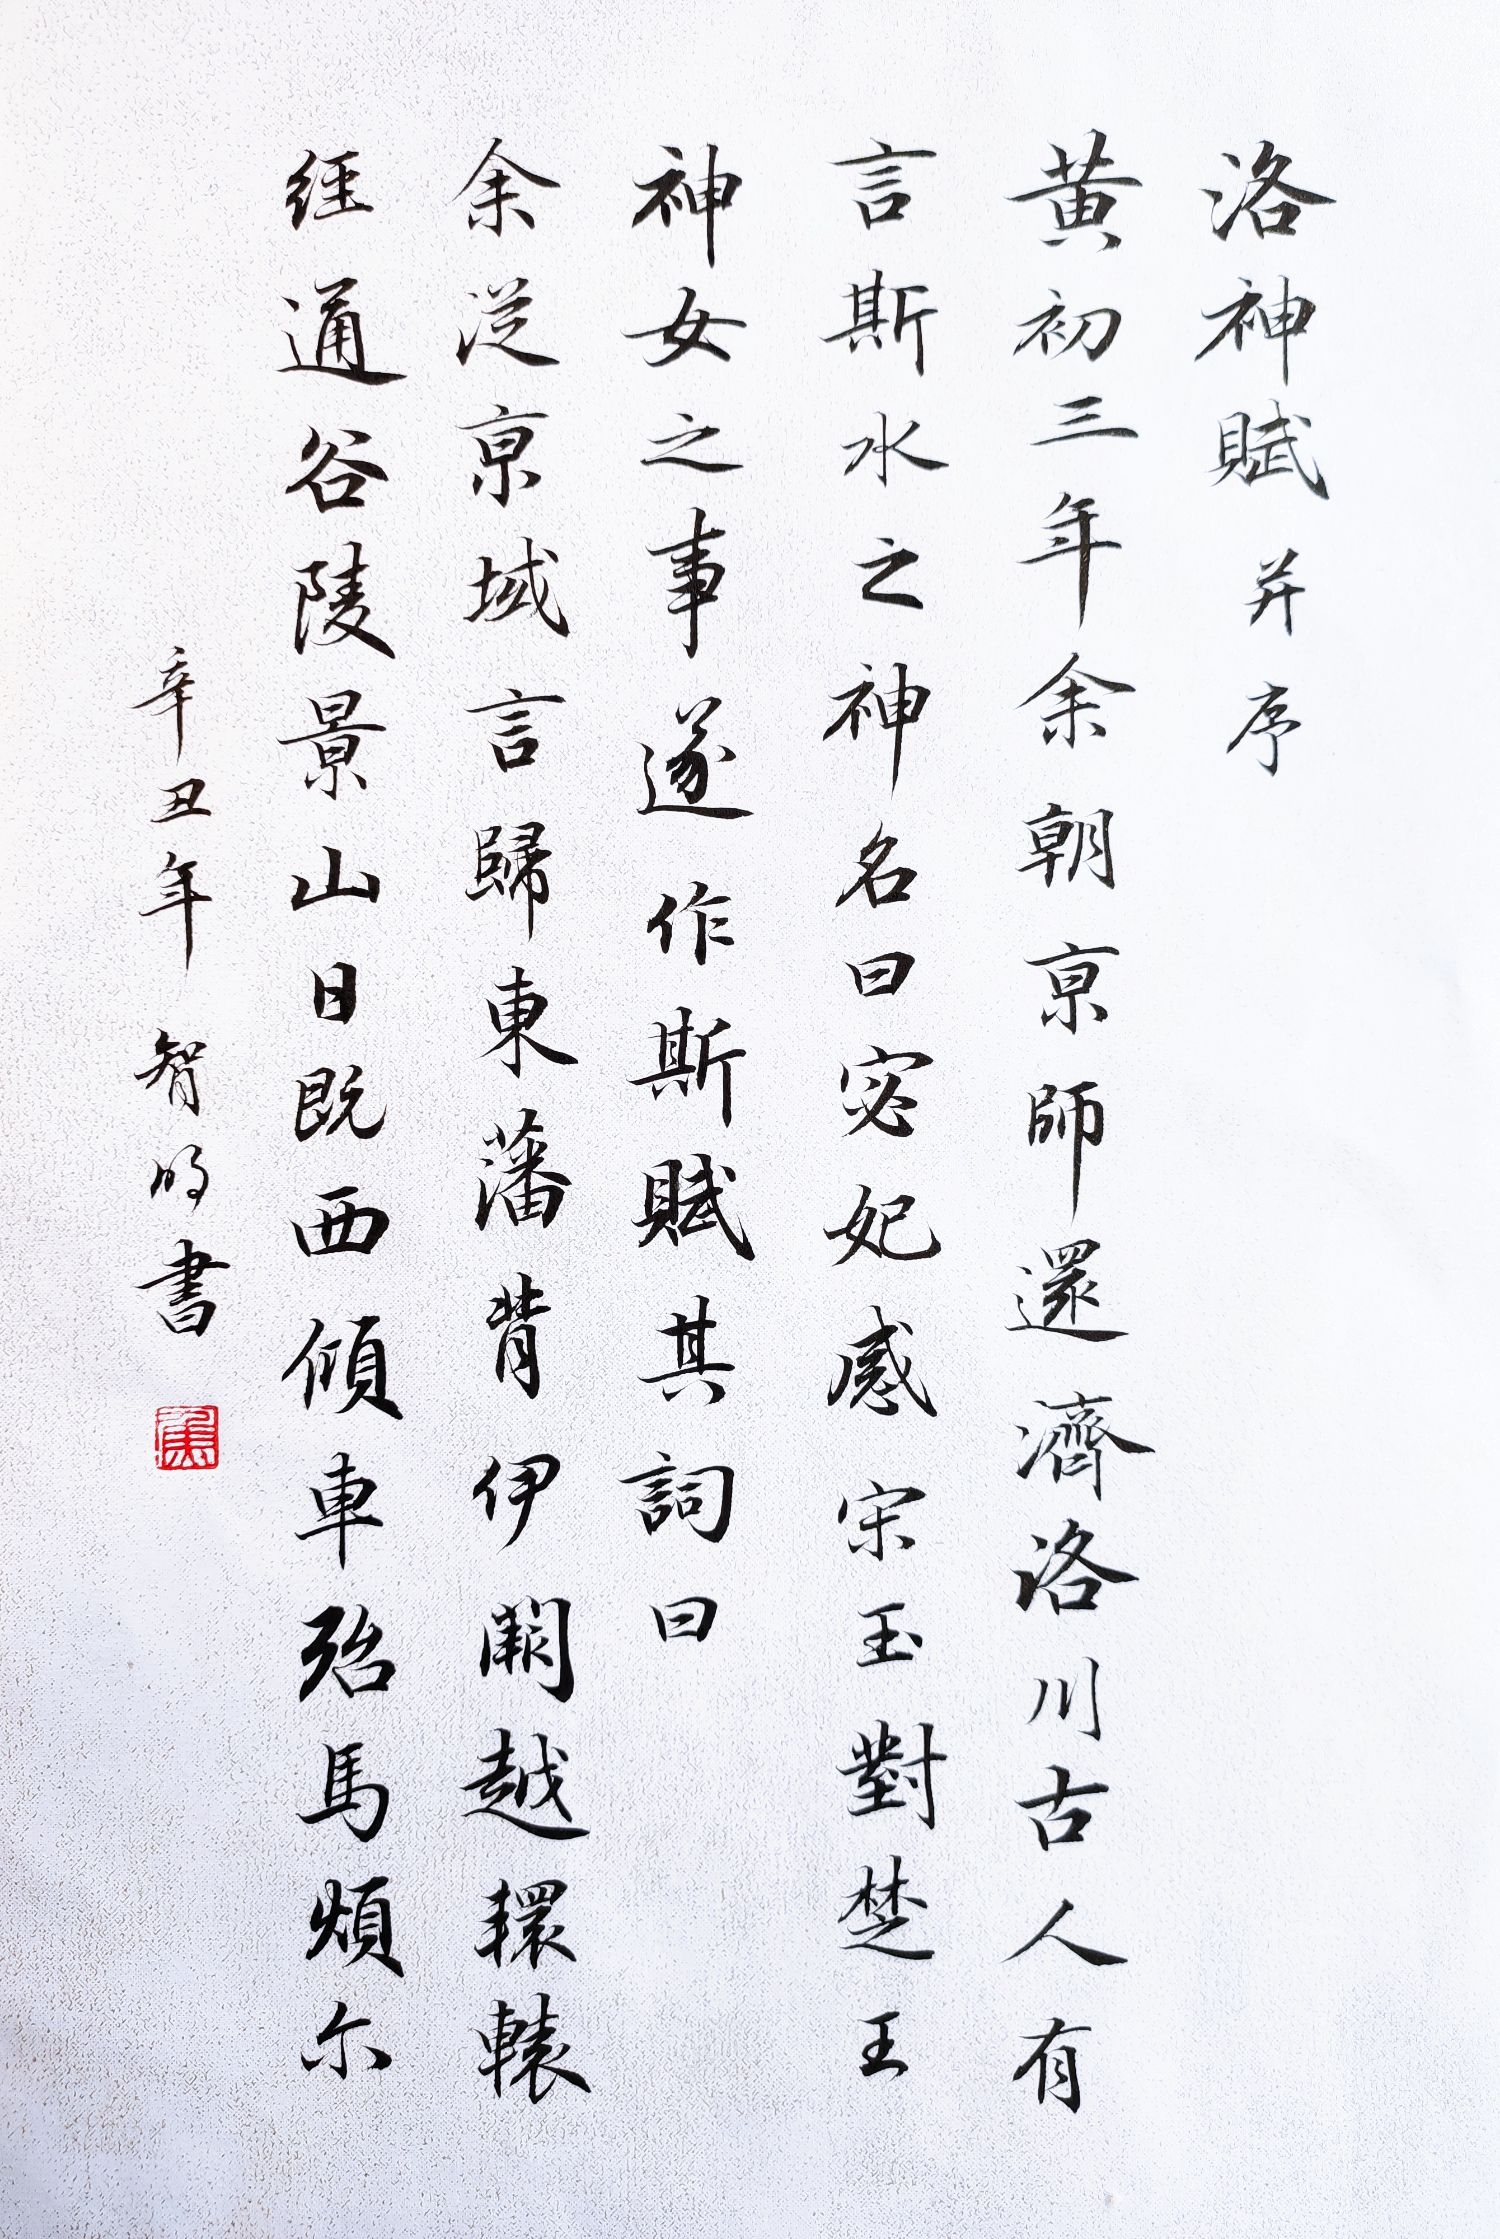 洛神賦 并序
黄初三年余朝京師還濟洛川古人有
言斯水之神名曰宓妃感宋玉對楚王
神女之事遂作斯賦其詞曰
余從京域言歸東藩背伊闕越轘轅
經通谷陵景山日既西傾車殆馬煩尔
辛丑年 智明書